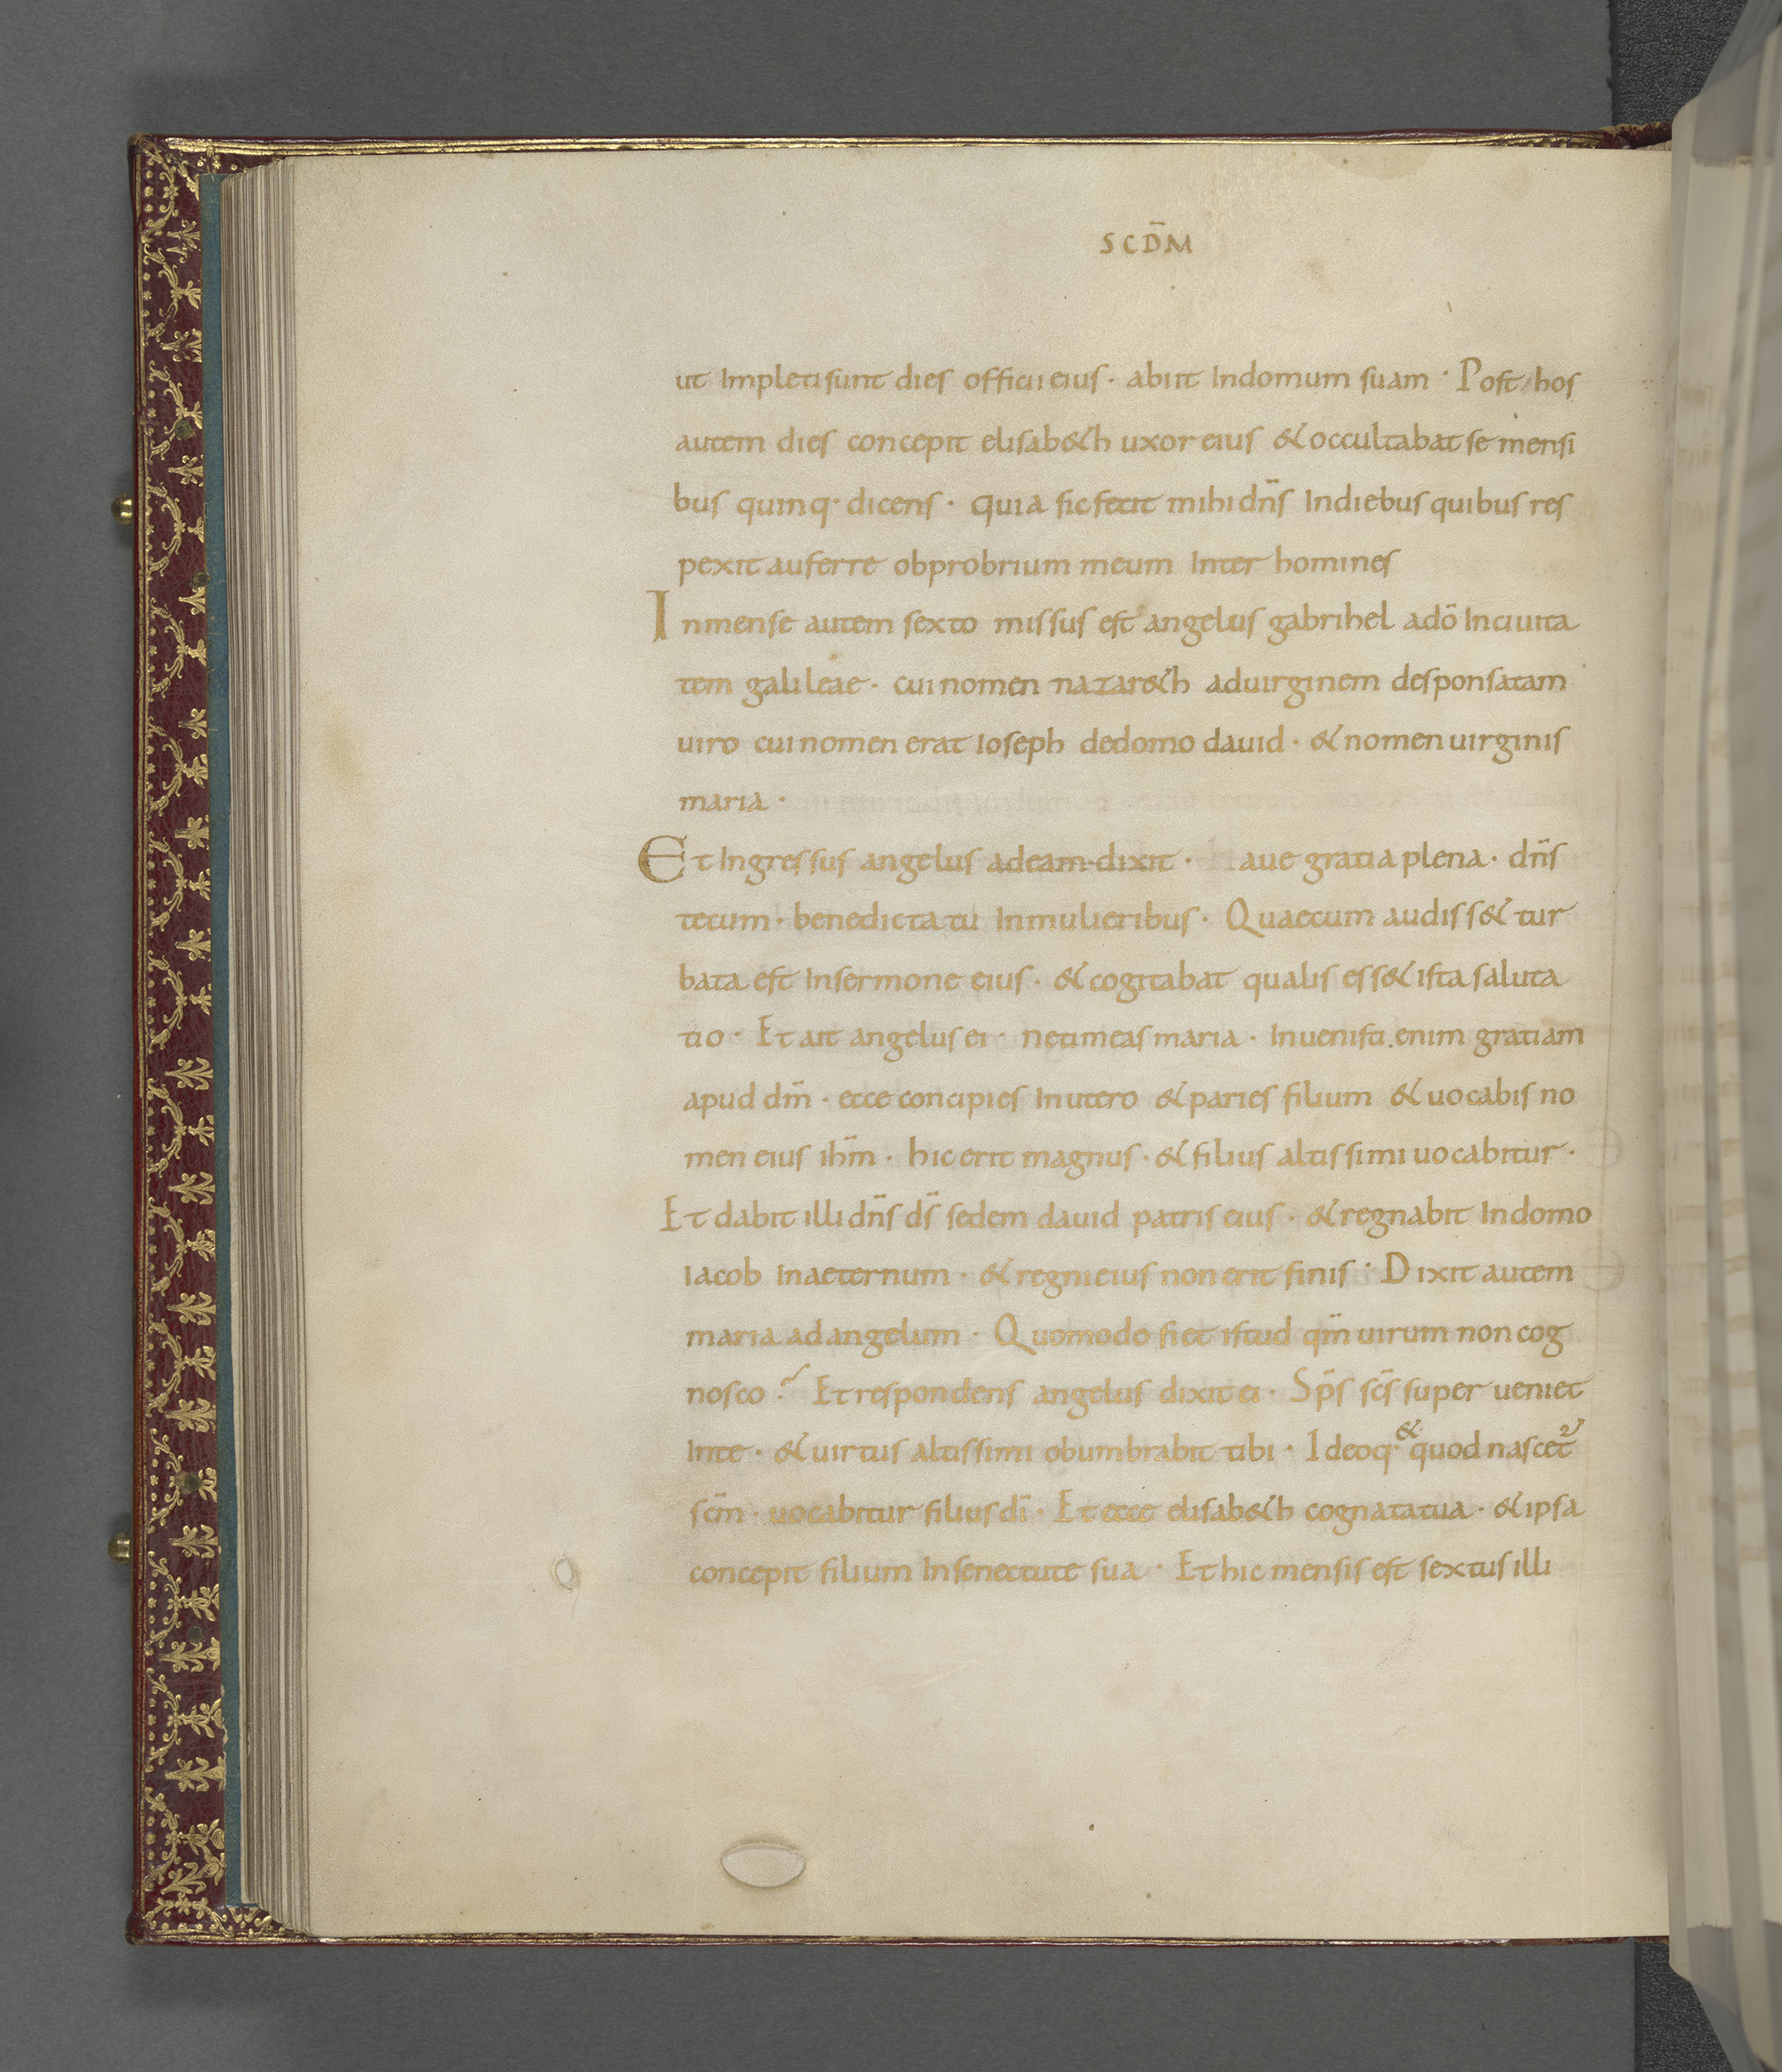 SCD̄M
ut Impleti sunt dies officii eius · abiit Indomum suam · Post hos
autem dies concepit elisab&h uxor eius & occultabat se mensi
bus quinq· dicens · quia sic fecit mihi dn̄s Indiebus quibus res
pexit auferre obprobrium meum Inter homines
Inmense autem sexto missus est angelus gabrihel adō Inciuita
tem galileae · cui nomen nazar&h aduirginem desponsatam
uiro cui nomen erat Ioseph dedomo dauid · & nomen uirginis
maria ·
Et Ingressus angelus adeam · dixit · aue gratia plena · dn̄s
tecum · benedicta tu Inmulieribus · Quaecum audiss& tur
bata est Insermone eius · & cogitabat qualis ess& ista saluta
tio · Et ait angelus ei · netimeas maria · Inuenisti enim gratiam
apud dm̄ · ecce concipies Inutero & paries filium & uocabis no
men eius ihm̄ · hic erit magnus · & filius altissimi uocabitur ·
Et dabit illi dn̄s ds̄ sedem dauid patris eius · & regnabit Indomo
Iacob Inaeternum · & regni eius non erit finis · Dixit autem
maria ad angelum · Quomodo fiet istud qm̄ uirum non cog
nosco ? Et respondens angelus dixit ei · Sp̄s sc̄s super ueniet
Inte · & uirtus altissimi obumbrabit tibi · Ideoq· & quod nascet᷑
scm̄ · uocabitur filius dī · Et ecce elisab&h cognata tua · & ipsa
concepit filium Insenectute sua · Et hic mensis est sextus illi